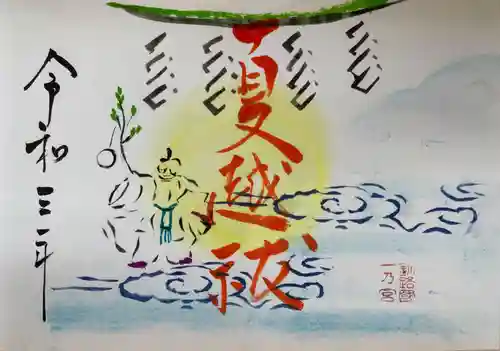 夏越祓
令和三年
釧路國
一乃宮